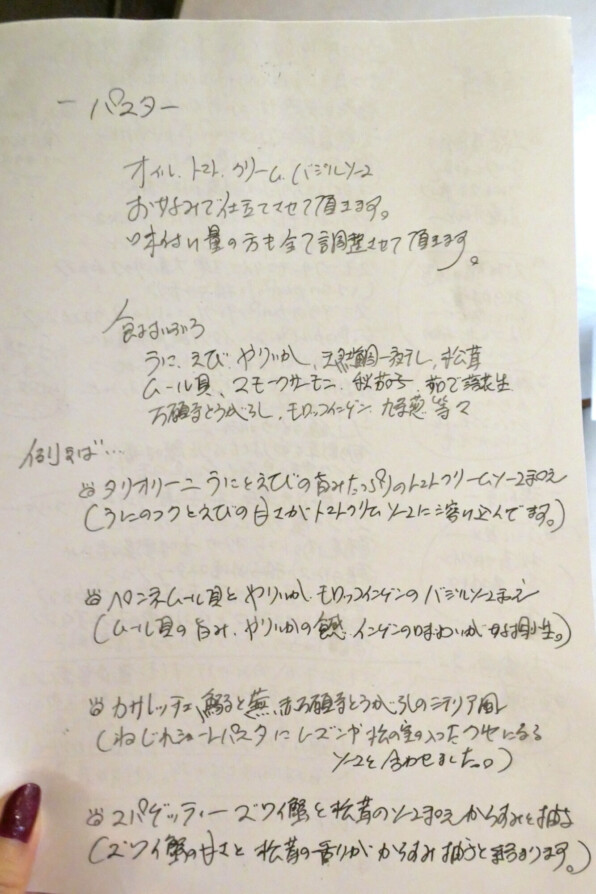 ー パスター
オイル、トマト、クリーム、バジルソース
お好みで仕立てさせて頂きます。
味付け量の方も全て調整させて頂きます。
食材いろいろ
うに、えび、やりいか、天然鯛一夜干し、松茸
ムール貝、スモークサーモン、秋茄子、茹で落花生
万願寺とうがらし、モロッコインゲン、九条葱、等々
例えば…
タリオリーニ うにとえびの旨みたっぷりのトマトクリームソース和え
(うにのコクとえびの甘さがトマトクリームソースに溶け込んでます。)
ペンネ ムール貝とやりいか、モロッコインゲンのバジルソース和え
(ムール貝の旨み、やりいかの食感、インゲンの味わいが好相性。)
カサレッチェ 鰯と蕪、赤万願寺とうがらしのシチリア風
(ねじれショートパスタにレーズンや松の実の入ったクセになる
ソースと合わせました。)
スパゲッティー ズワイ蟹と松茸のソース和え からすみと柚子
(ズワイ蟹の甘さと松茸の香りがからすみ柚子と絡まります。)